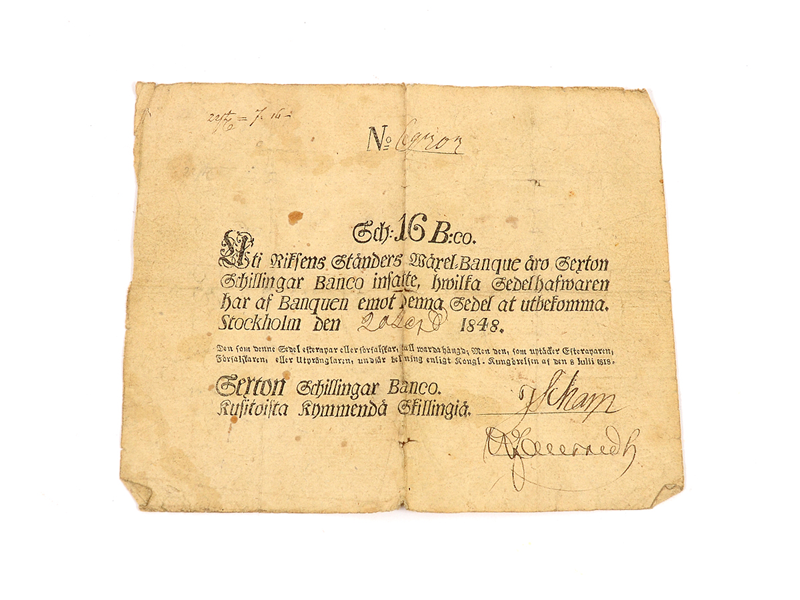 No
Sch: 16 B:co.
Uti Riksens Ständers Wäxel-Banque äro Sexton
Schillingar Banco insatte, hwilka Sedelhafwaren
har af Banquen emot denna Sedel at utbekomma.
Stockholm den 1848.
Den som denne Sedel efterapar eller förfalskar, skall warda hängd; Men den, som uptäcker Efteraparen,
Förfalskaren, eller Utprånglaren, undfår belöning enligt Kongl. Kungörelsen af den 8 Julii 1818.
Sexton Schillingar Banco.
Kusitoista Kymmendä Skillingiä.